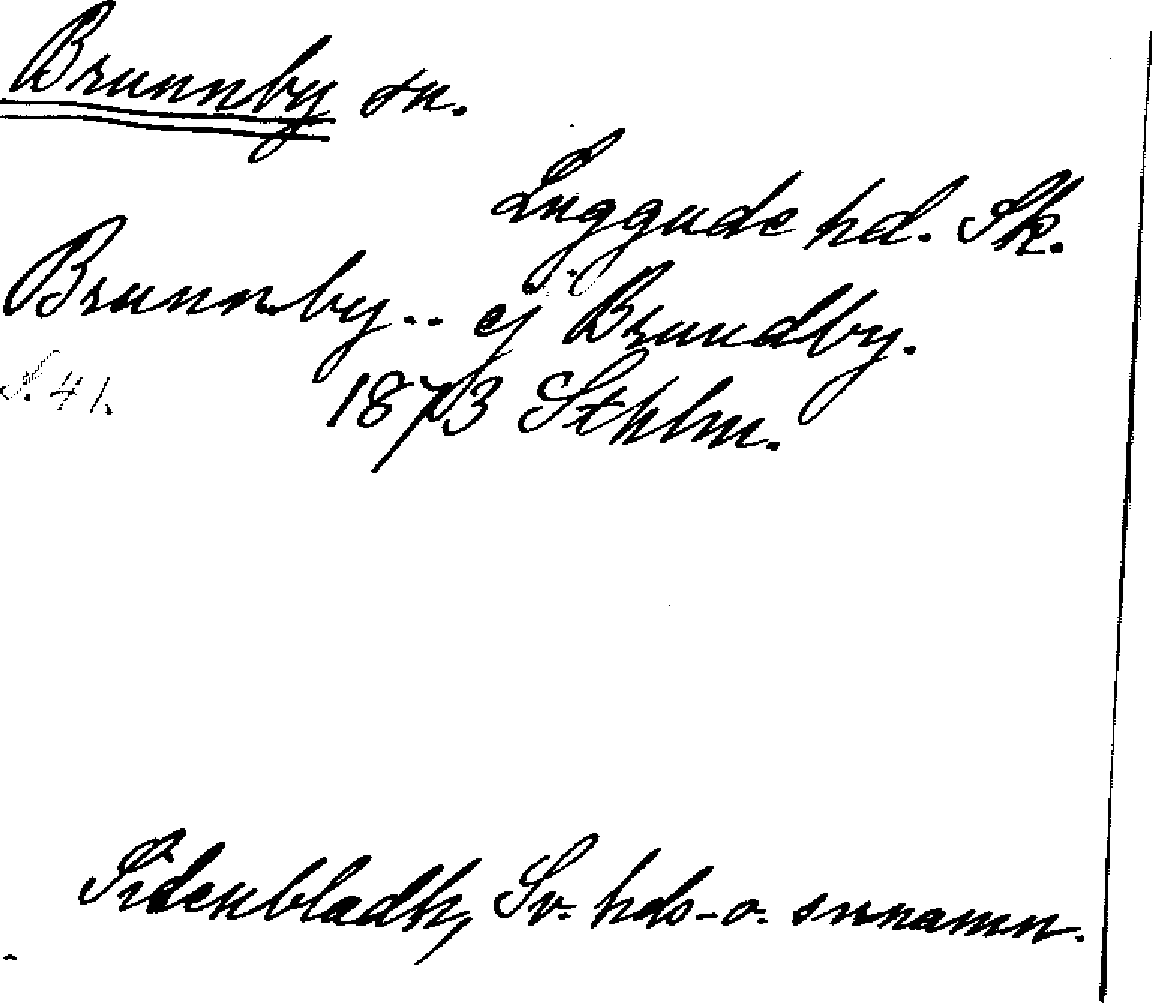 Brunnby sn.
Luggude hd. Sk.
Brunnby.. ej Brundby.
S. 41. 1873 Sthlm.
Sidenbladh, Sv. hds- o. snnamn.